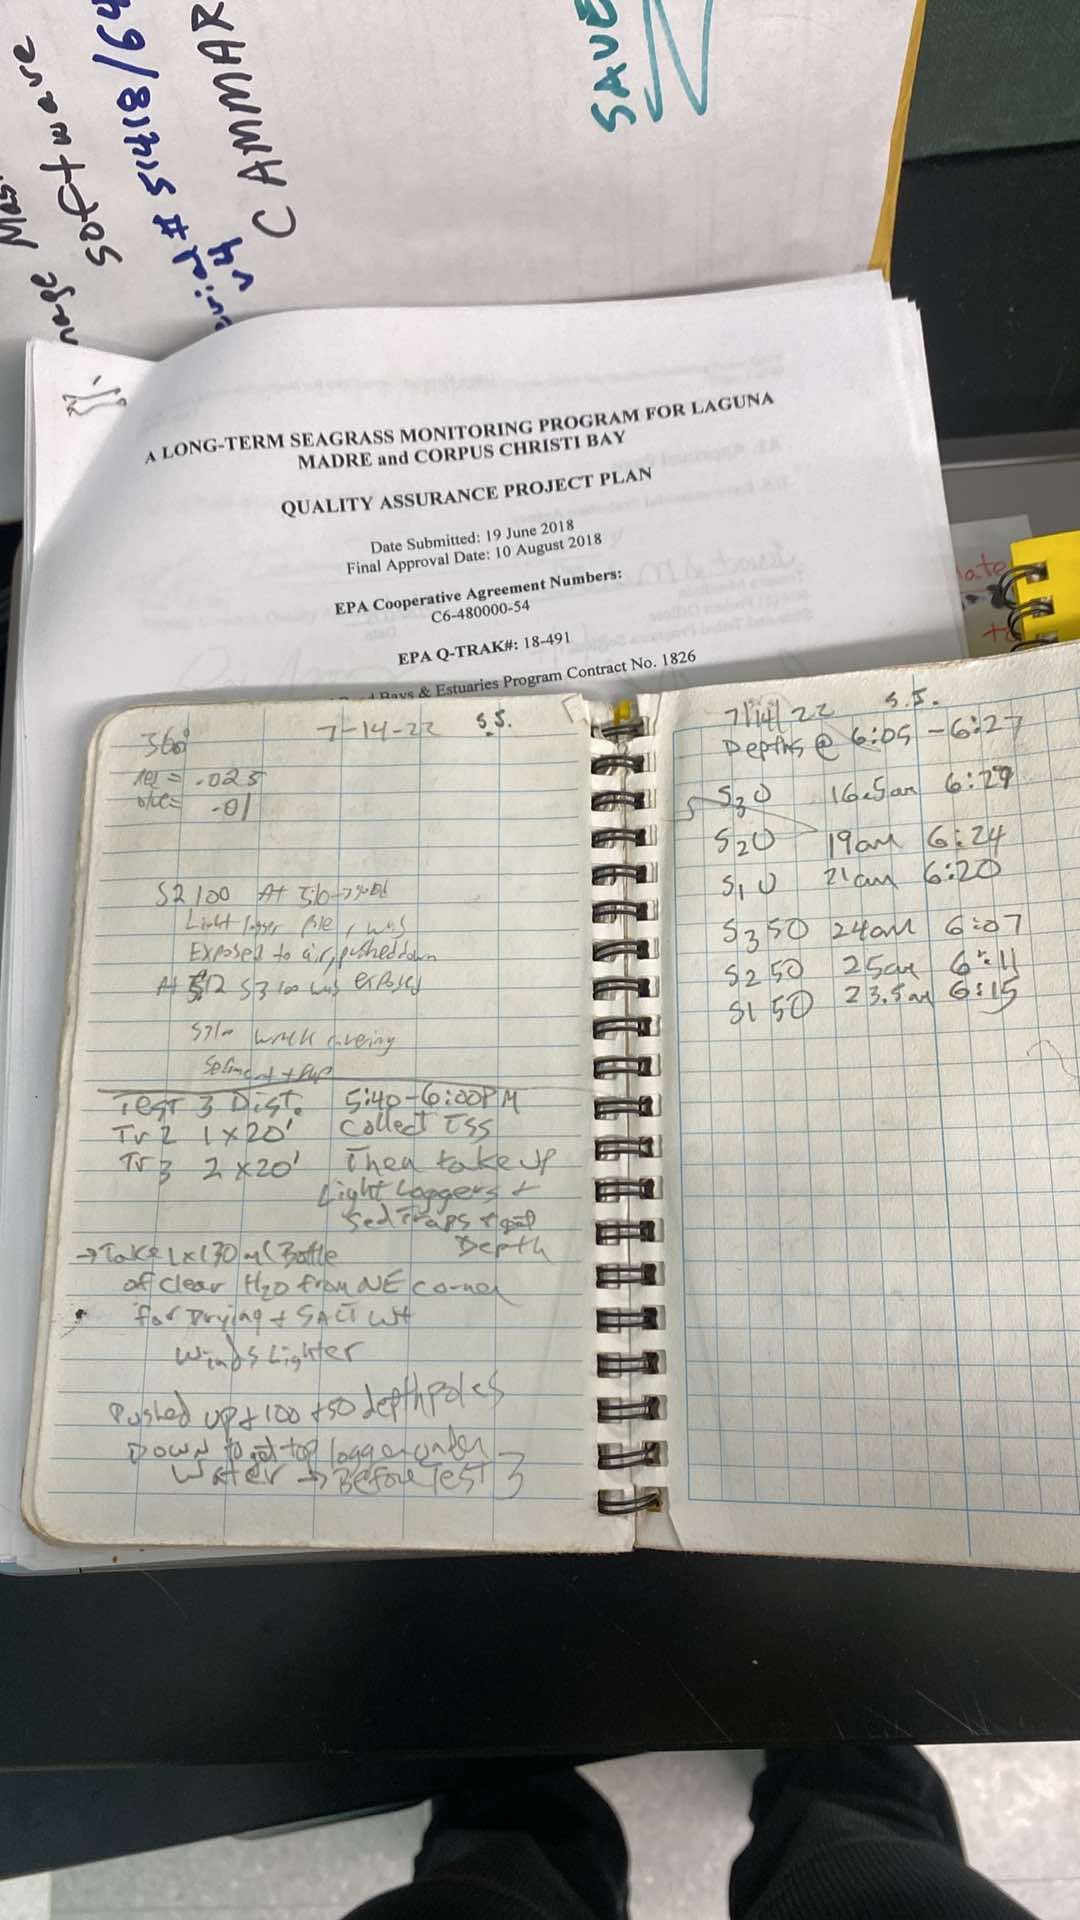 SAVE
software
# 51418/64
v4
CAMMAR
A LONG-TERM SEAGRASS MONITORING PROGRAM FOR LAGUNA
MADRE and CORPUS CHRISTI BAY
QUALITY ASSURANCE PROJECT PLAN
Date Submitted: 19 June 2018
Final Approval Date: 10 August 2018
EPA Cooperative Agreement Numbers:
C6-480000-54
EPA Q-TRAK#: 18-491
Bays & Estuaries Program Contract No. 1826
360° 7-14-22 S.S.
= -.025
= -.01
S2 100 At
Light logger Pole, was
Exposed to air, pushed down
At S3 100 was exposed
wrack covering
Sediment trap
Test 3 Dist. 5:40-6:00PM
Tr 2 1x20' Collect TSS
Tr 3 2x20' Then take up
Light Loggers +
Sed Traps + get
Depth
→ Take 1x130 ml Bottle
of clear H2O from NE corner
for Drying + SALT Wt
Winds Lighter
Pushed up + 100 + 50 depth poles
Down to get top logger under
Water → Before Test 3
7/14/22 S.S.
Depths @ 6:05 - 6:27
S3 0 16.5cm 6:29
S2 0 19cm 6:24
S1 0 21cm 6:20
S3 50 24cm 6:07
S2 50 25cm 6:11
S1 50 23.5cm 6:15